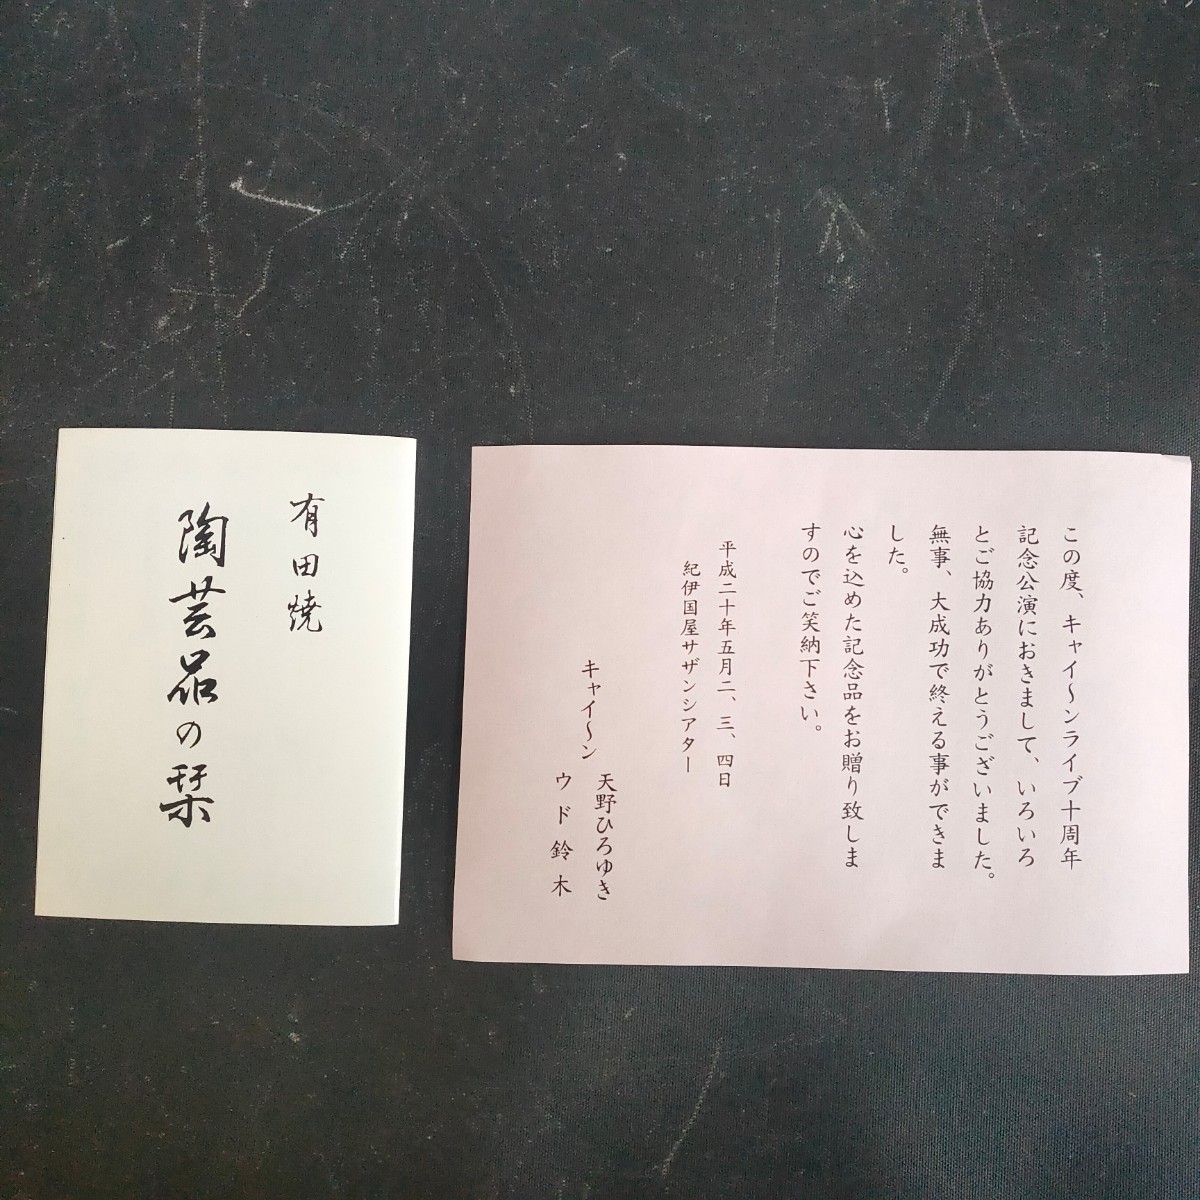 有田焼
陶芸品の栞
この度、キャイ〜ンライブ十周年
記念公演におきまして、いろいろ
とご協力ありがとうございました。
無事、大成功で終える事ができま
した。
心を込めた記念品をお贈り致しま
すのでご笑納下さい。
平成二十年五月二、三、四日
紀伊国屋サザンシアター
キャイ〜ン
天野ひろゆき
ウド鈴木